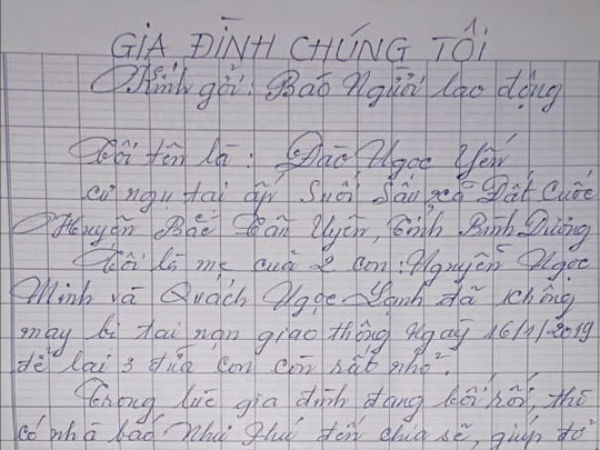 GIA ĐÌNH CHÚNG TÔI
Kính gởi: Báo Người lao động
Tôi tên là: Đào Ngọc Yến
cư ngụ tại ấp Suối Sâu xã Đất Cuốc
Huyện Bắc Tân Uyên, tỉnh Bình Dương
Tôi là mẹ của 2 con: Nguyễn Ngọc
Minh và Quách Ngọc Hạnh đã không
may bị tai nạn giao thông ngày 16/1/2019
để lại 3 đứa con còn rất nhỏ.
Trong lúc gia đình đang bối rối, thì
có nhà báo Như Phú đến chia sẽ, giúp đỡ